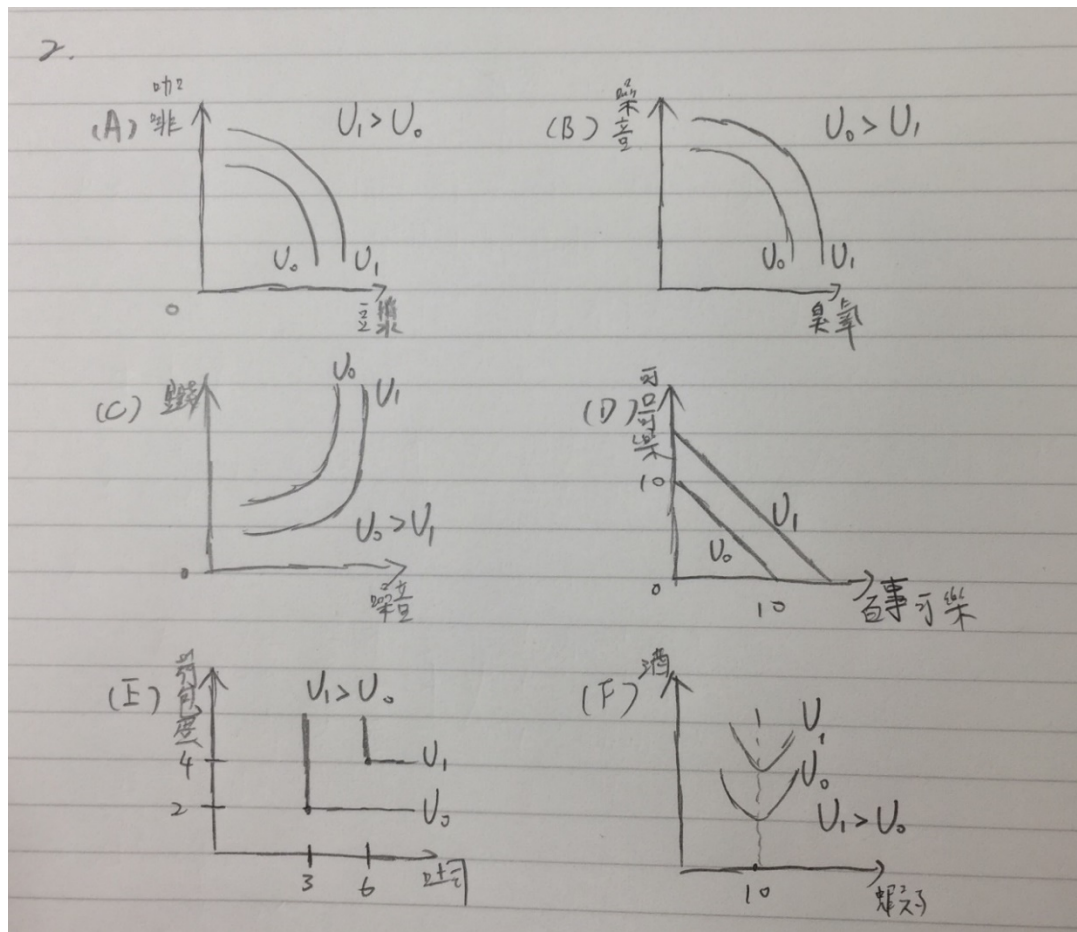 2.
(A) 咖啡
U₁>U₀
U₀ U₁
0
豆漿
(B) 噪音
U₀>U₁
U₀ U₁
臭氧
(C)
U₀ U₁
U₀>U₁
0
噪音
(D) 可口可樂
10
U₁
U₀
0
10
百事可樂
(E)
U₁>U₀
4
U₁
2
U₀
3 6
(F) 酒
U₁
U₀
U₁>U₀
10
蝦子